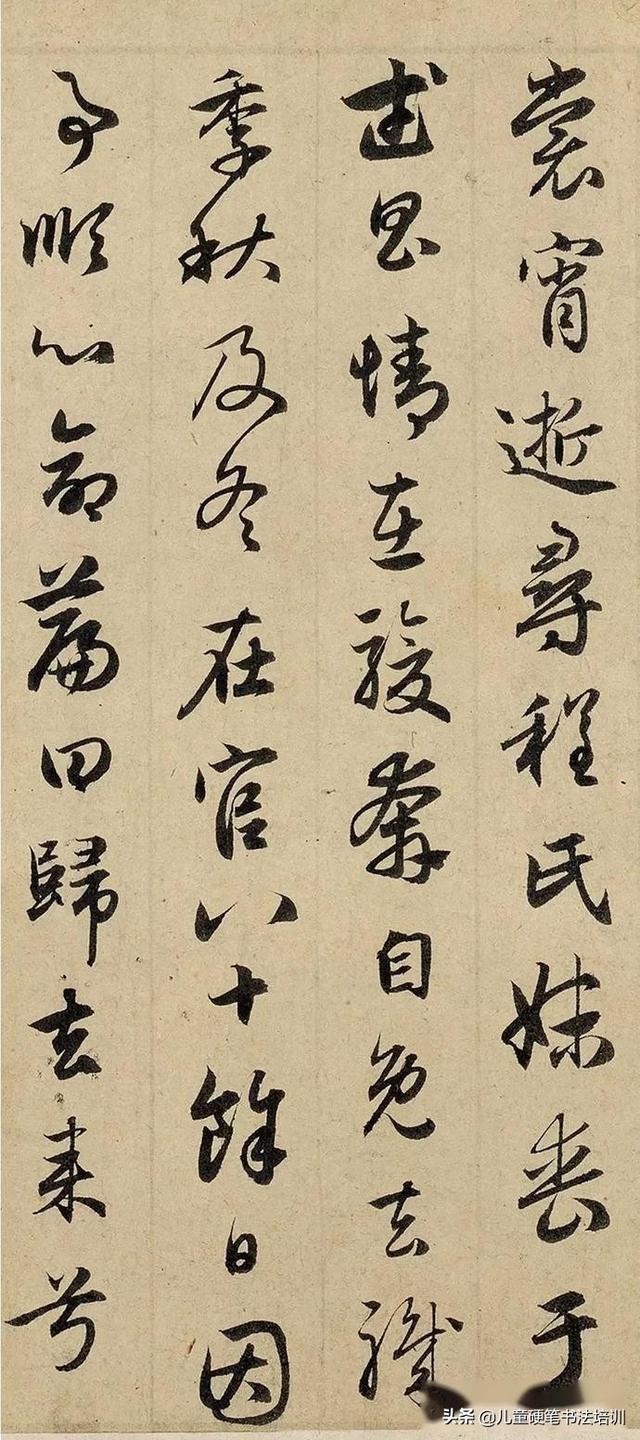 裳宵逝尋程氏妹喪于
武昌情在駿奔自免去職
季秋及冬在官八十餘日因
事順心命篇曰歸去来兮
头条 @儿童硬笔书法培训